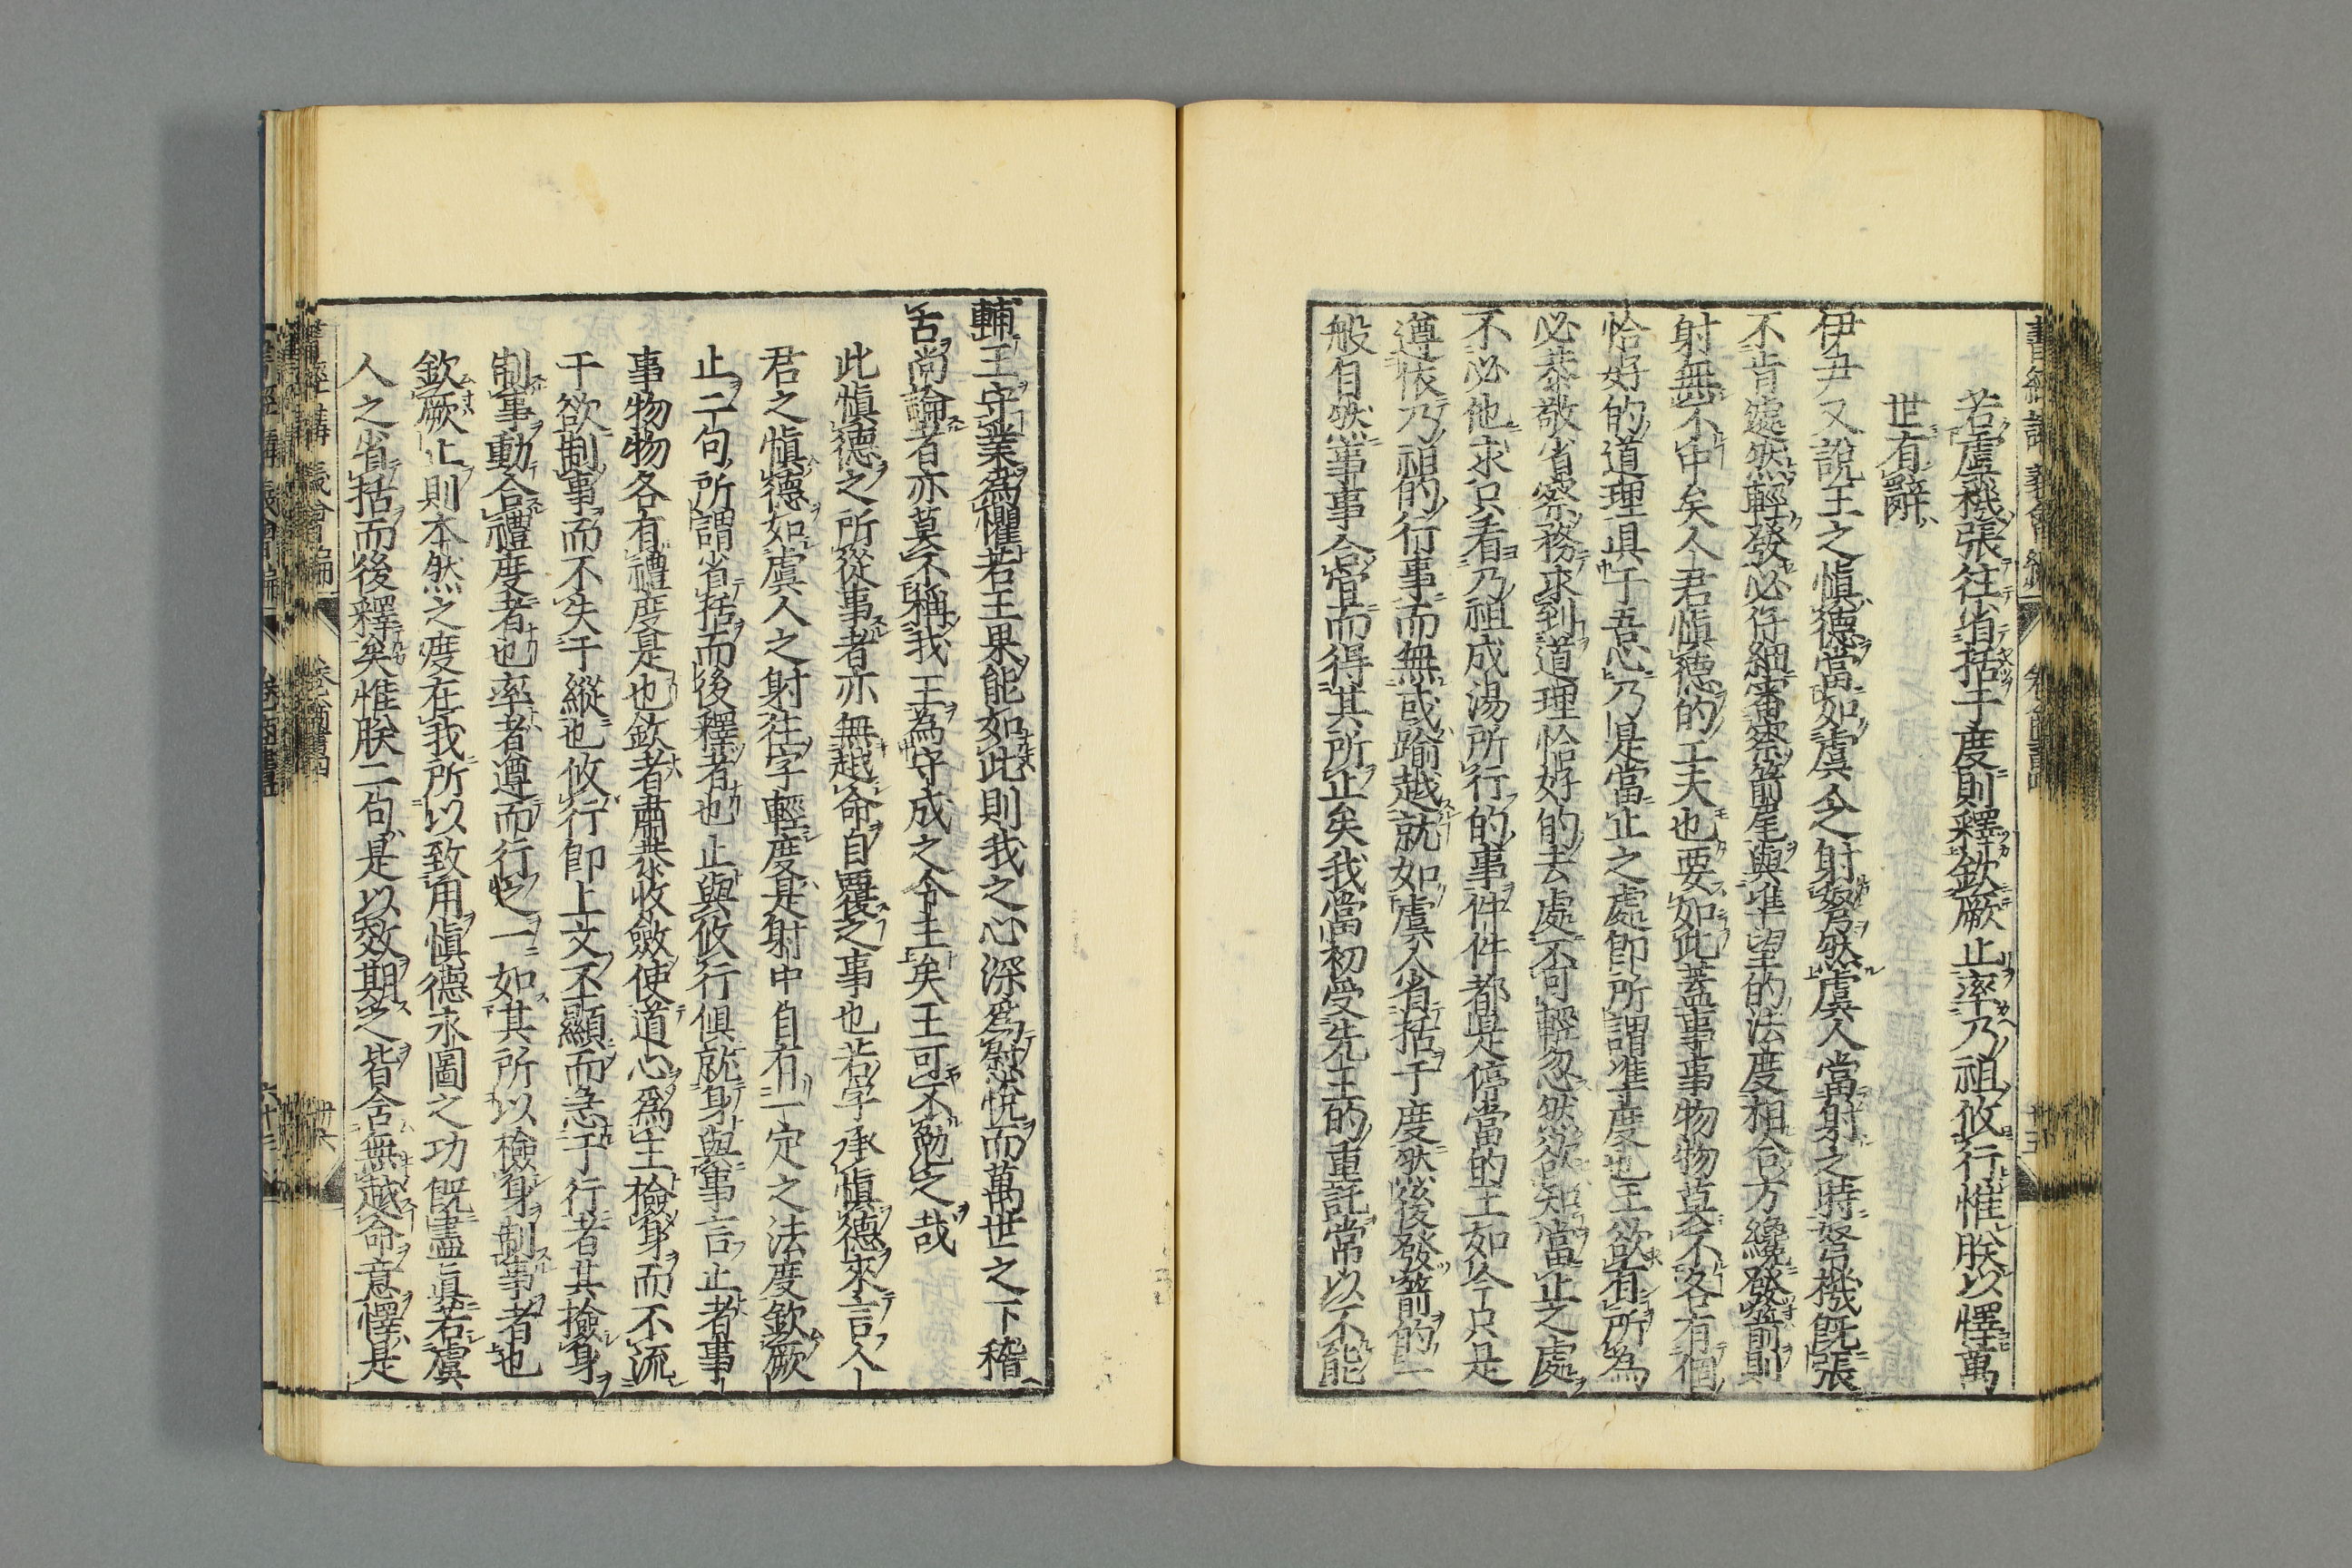 若虞機張往省括于度則釋欽厥止率乃祖攸行惟朕以懌萬
世有辭
伊尹又說王之愼德當如虞人之射弩然虞人當射之時弩機旣張
不肯遽然輕發必仔細審察箭尾與準望的法度相合方纔發箭則
射無不中矣人君愼德的工夫也要如此蓋事事物物莫不各有個
恰好的道理具于吾心乃是當止之處卽所謂準度也王欲有所為
必恭敬省察務求到道理恰好的去處不可輕忽然欲知當止之處
不必他求只看乃祖成湯所行的事件件都是停當的王如今只是
遵依乃祖的行事而無或踰越就如虞人省括于度然後發箭的一
般自然事事合宜而得其所止矣我當初受先王的重託常以不能
輔王守業為懼若王果能如此則我之心深為慰悅而萬世之下稽
古尚論者亦莫不稱我王為守成之令主矣王可不勉之哉
此愼德之所從事者亦無越命自覆之事也若字承愼德來言人
君之愼德如虞人之射往字輕度是射中自有一定之法度欽厥
止二句所謂省括而後釋者也止與攸行俱就身與事言止者事
事物物各有禮度是也欽者肅恭收斂使道心爲主檢身而不流
于欲制事而不失于縱也攸行卽上文丕顯而急于行者其檢身
制事動合禮度者也率者遵而行之一如其所以檢身制事者也
欽厥止則本然之度在我所以致用愼德永圖之功旣盡眞若虞
人之省括而後釋矣惟朕二句是以效期之皆含無越命意懌是
書經講義會編
卷六商書四